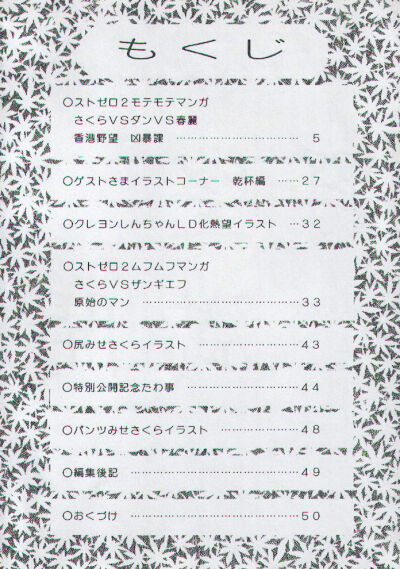 もくじ
○ストゼロ2モテモテマンガ
さくらVSダンVS春麗
香港野望　凶暴課 ……………………… 5
○ゲストさまイラストコーナー　乾杯編 ……27
○クレヨンしんちゃんLD化熱望イラスト …32
○ストゼロ2ムフムフマンガ
さくらVSザンギエフ
原始のマン ………………………33
○尻みせさくらイラスト ………………43
○特別公開記念たわ事 ………………44
○パンツみせさくらイラスト …………48
○編集後記 ………………………49
○おくづけ ………………………50